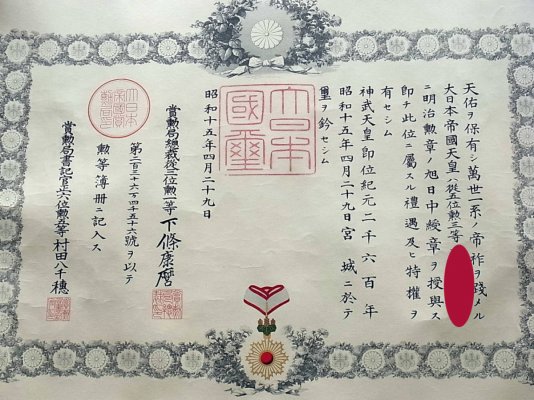 天佑ヲ保有シ萬世一系ノ帝祚ヲ踐メル
大日本帝國天皇ハ從五位勲三等
ニ明治勲章ノ旭日中綬章ヲ授與ス
即チ此位ニ屬スル禮遇及ヒ特權ヲ
有セシム
神武天皇即位紀元二千六百年
昭和十五年四月二十九日宮城ニ於テ
璽ヲ鈐セシム
大日本國璽
昭和十五年四月二十九日
賞勲局總裁從三位勲一等下條康麿
第二百三十六万四千五十六號ヲ以テ
勲等簿冊ニ記入ス
賞勲局書記官正六位勲五等村田八千穗